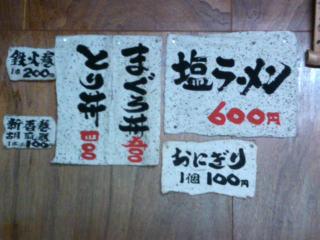 塩ラーメン
600円
おにぎり
1個 100円
まぐろ丼
とり丼
鉄火巻
1本 200円
新香巻
1本 100円